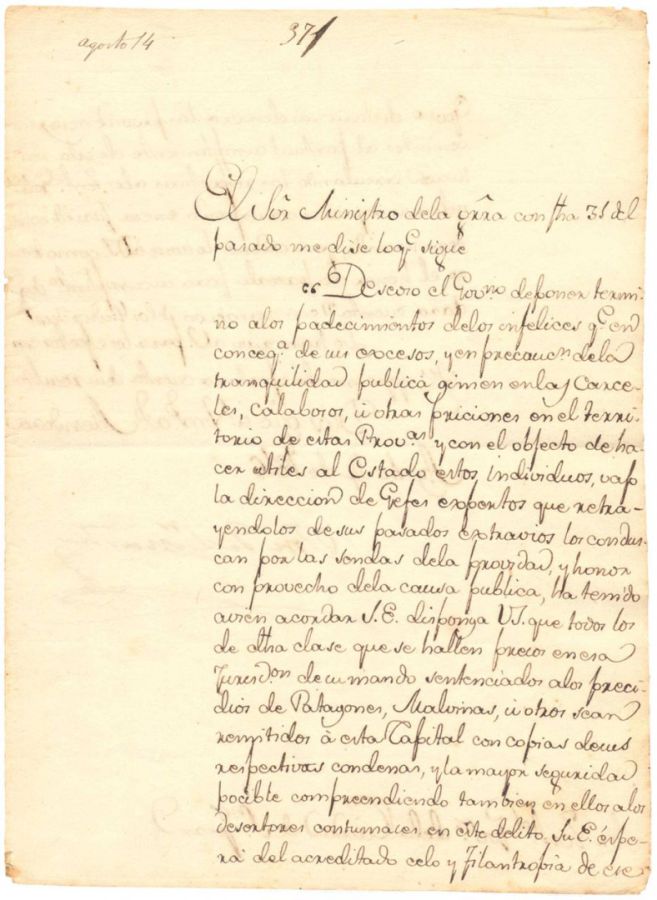 agosto 14
371
El Sõr Ministro dela grra con fha 31 del
pasado me dise loq.e sigue
"Deseoso el Gov.no de poner termi
no alos padecimientos delos infelices q.e en
conceq.a de sus excesos, y en precauc.n dela
tranquilidad publica gimen en las Carce
les, calabosos, ú otras priciones en el terri
torio de estas Prov.as y con el objecto de ha
cer utiles al Estado estos individuos, vajo
la direccion de Gefes expertos que retra
yendolos de sus pasados extravios los condus
can por las sendas dela providad, y honor
con provecho dela causa publica, ha tenido
avien acordar S.E. disponga VS. que todos los
de dha clase que se hallen precos en esa
Jurisd.on de su mando sentenciados alos preci
dios de Patagones, Malvinas, ú otros sean
remitidos à esta Capital con copias de sus
respectivas condenas, y la mayor seguridad
pocible compreendiendo tambien en ellos alos
desertores contumaces en este delito. Su E. espe
ra del acreditado celo y filantropia de ese